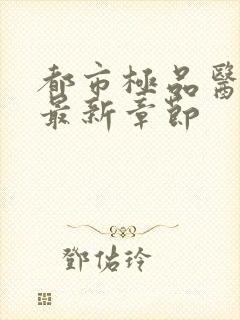 都市極品醫
最新章節
鄧佑玲